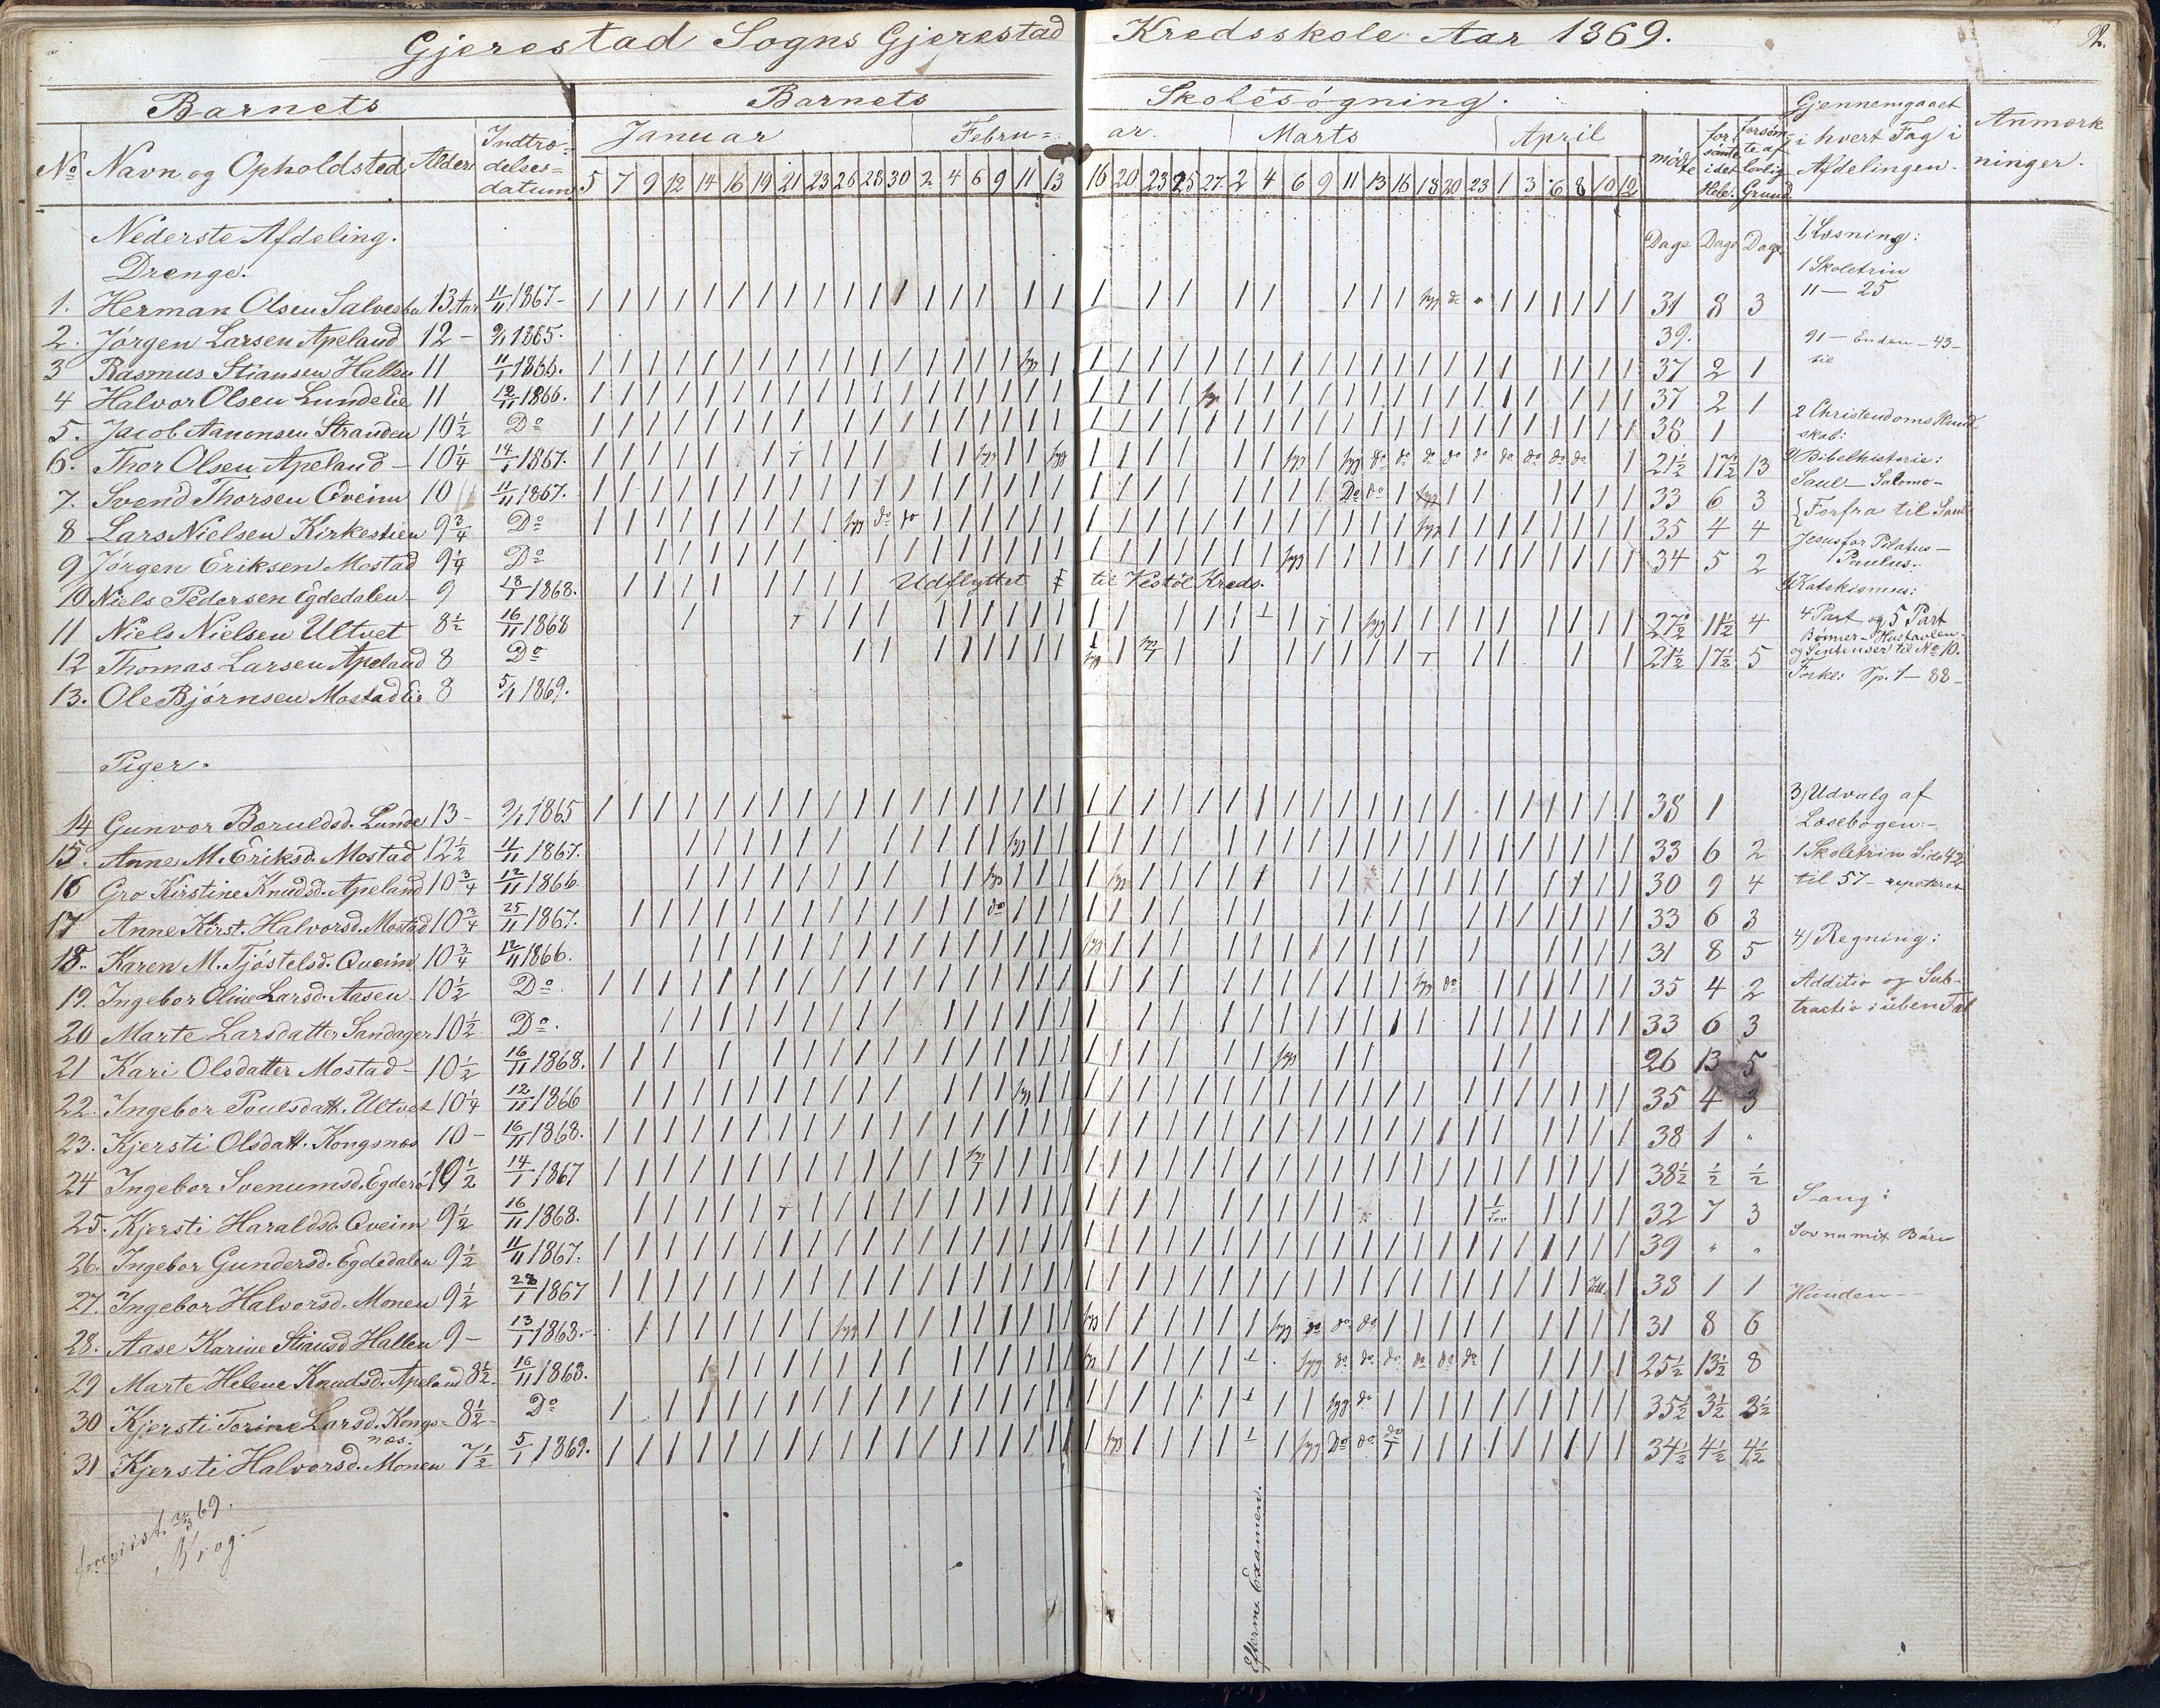 Gjerestad Sogns Gjerestad Kredsskole Aar 1869.
Barnets
Barnets Skolesøgning.
Gjennemgaaet i hvert Fag i Afdelingen.
Anmærkninger.
No Navn og Opholdsted Alder Indtrædelsesdatum
Januar Februar Marts April
5 7 9 12 14 16 19 21 23 26 28 30 2 4 6 9 11 13 16 20 23 25 27 2 4 6 9 11 13 16 18 20 23 1 3 6 8 10 12
mødte forsømte i det Hele. forsømte af lovlig Grund
Nederste Afdeling. Dage Dage Dage
Drenge.
1. Herman Olsen 13 Aar 11/11 1867 31 8 3
2. Jørgen Larsen Apeland 12 - 1865. 39.
3 Rasmus Stiansen Hallen 11 1866. 37 2 1
4 Halvor Olsen Lunde Eie 11 12/11 1866. 37 2 1
5. Jacob Aanonsen Stranden 10½ Do 38 1
6. Thor Olsen Apeland - 10¼ 14/1 1867. 21½ 17½ 13
7. Svend Thorsen Qveim 10 11/11 1867. 33 6 3
8 Lars Nielsen Kirkestien 9¾ Do 35 4 4
9 Jørgen Eriksen Mostad 9¼ Do 34 5 2
10 Niels Pedersen Egdedalen 9 13/1 1868. Udflyttet til Vestøl Kreds.
11 Niels Nielsen Ultvet 8½ 16/11 1868 27½ 11½ 4
12 Thomas Larsen Apeland 8 Do 21½ 17½ 5
13. Ole Bjørnsen Mostad Eie 8 5/1 1869.
Piger.
14 Gunvor Bæruldsd. Lunde 13 - 1865 38 1
15. Anne M. Eriksd. Mostad 12½ 11/11 1867. 33 6 2
16 Gro Kirstine Knudsd. Apeland 10¾ 12/11 1866 30 9 4
17 Anne Kirst. Halvorsd. Mostad 10¾ 25/11 1867. 33 6 3
18. Karen M. Tjøstelsd. Qveim 10¾ 12/11 1866. 31 8 5
19. Ingebor Oline Larsd. Aasen 10½ Do. 35 4 2
20 Marte Larsdatter Sandager 10½ Do. 33 6 3
21 Kari Olsdatter Mostad - 10½ 16/11 1868. 26 13 5
22. Ingebor Poulsdatt. Ultvet 10¼ 12/11 1866 35 4 3
23. Kjersti Olsdatt. Kongsnæs 10 - 16/11 1868. 38 1 "
24 Ingebor Svenumsd. 14/1 1867 38½ ½ ½
25. Kjersti Haraldsd. Qveim 9½ 16/11 1868. 32 7 3
26. Ingebor Gundersd. Egdedalen 9½ 11/11 1867. 39 " "
27. Ingebor Halvorsd. Monen 9½ 28/1 1867 38 1 1
28. Aase Karine Stiansd Hallen 9 - 13/1 1868. 31 8 6
29 Marte Helene Knudsd. Apeland 8½ 16/11 1868. 25½ 13½ 8
30 Kjersti Torine Larsd. Kongsnæs. 8½ Do 35½ 3½ 3½
31 Kjersti Halvorsd. Monen 7½ 5/1 1869. 34½ 4½ 4½
1, Læsning:
1 Skoletrin
11 - 25
91 - Enden - 43 -
til
2 Christendoms Kundskab:
Bibelhistorie:
Saul - Salomo -
Forfra til Saul
Jesus for Pilatus -
Paulus.
Katekismus:
4 Part og 5 Part
Bønner - Hustavlen
og Sentenser til No 10.
Forkl: Sp. 1 - 88 -
3, Udvalg af
Læsebogen: -
1 Skoletrin Side 42
til 57 - repeteret
4) Regning:
Additio og Subtractio i üben Tal
Sang:
Sov nu mit Barn
Hunden -
Efterm. Examen.
69.
Krog. -